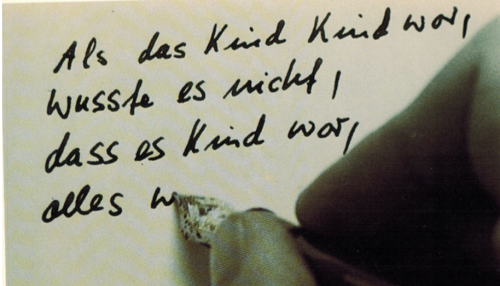 Als das Kind Kind war,
wusste es nicht,
dass es Kind war,
alles w